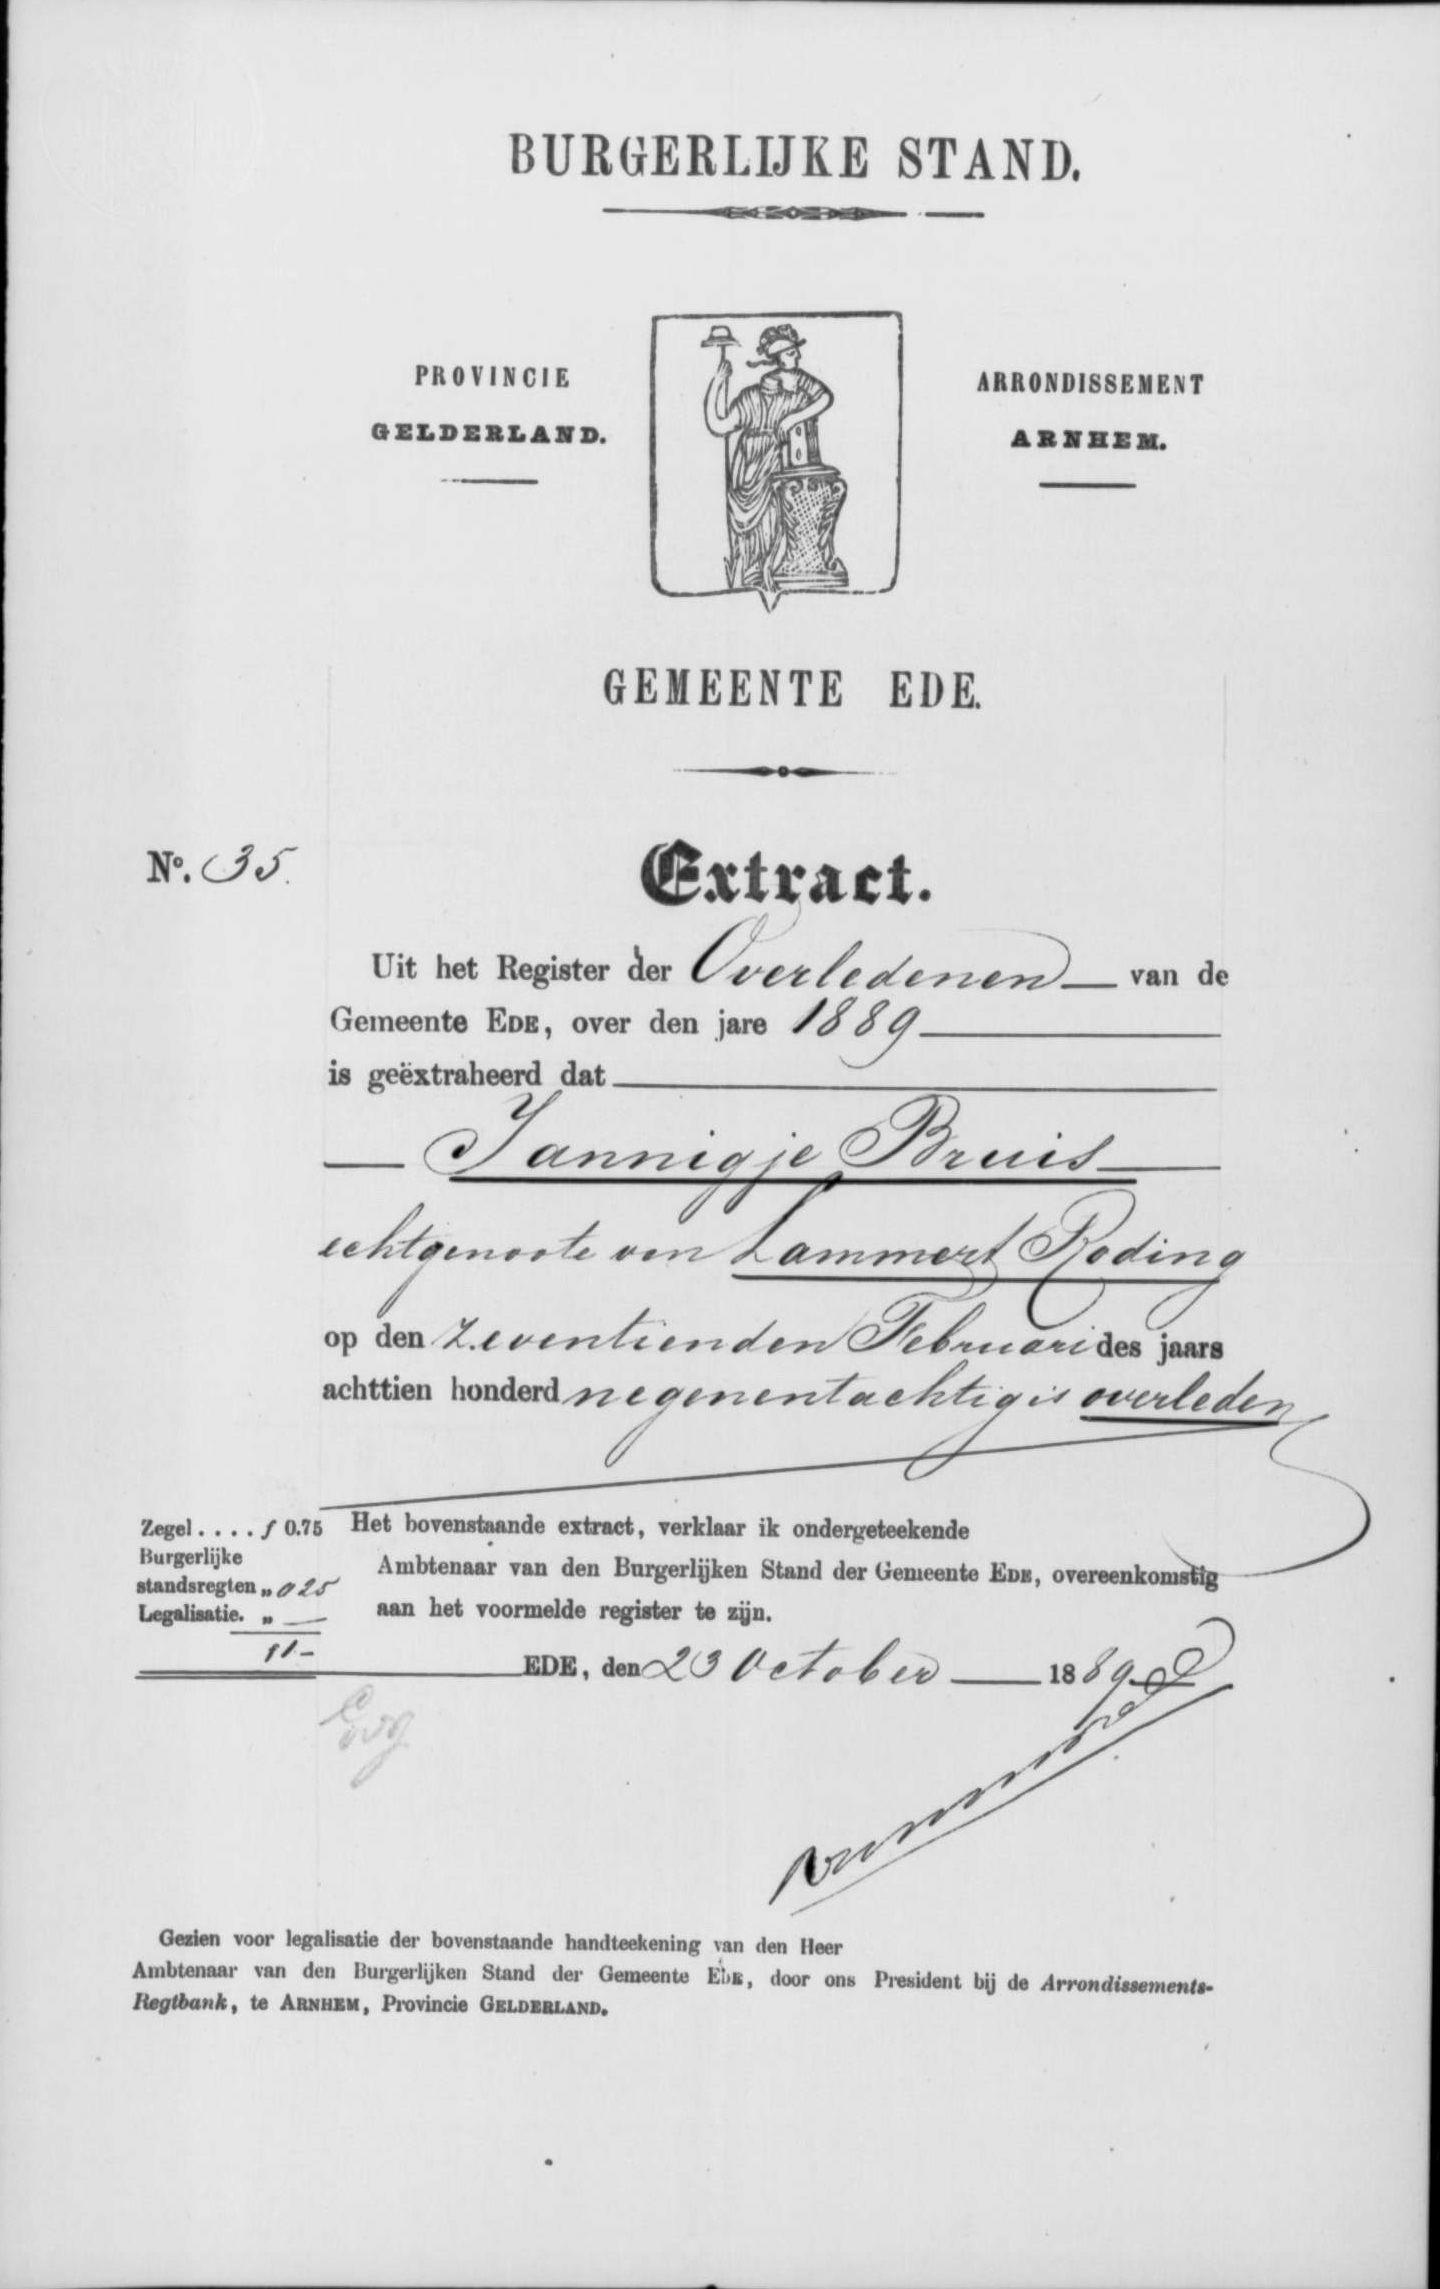 BURGERLIJKE STAND.
PROVINCIE
GELDERLAND.
ARRONDISSEMENT
ARNHEM.
GEMEENTE EDE.
No. 35.
Extract.
Uit het Register der Overledenen van de
Gemeente EDE, over den jare 1889
is geëxtraheerd dat
Jannigje Bruis
echtgenoote van Lammert Roding
op den zeventienden Februari des jaars
achttien honderd negenentachtig is overleden
Zegel.... f 0.75
Burgerlijke
standsregten „ 0 25
Legalisatie. „ —
f 1.-
Het bovenstaande extract, verklaar ik ondergeteekende
Ambtenaar van den Burgerlijken Stand der Gemeente EDE, overeenkomstig
aan het voormelde register te zijn.
EDE, den 23 October 1889
Gezien voor legalisatie der bovenstaande handteekening van den Heer
Ambtenaar van den Burgerlijken Stand der Gemeente EDE, door ons President bij de Arrondissements-
Regtbank, te ARNHEM, Provincie GELDERLAND.